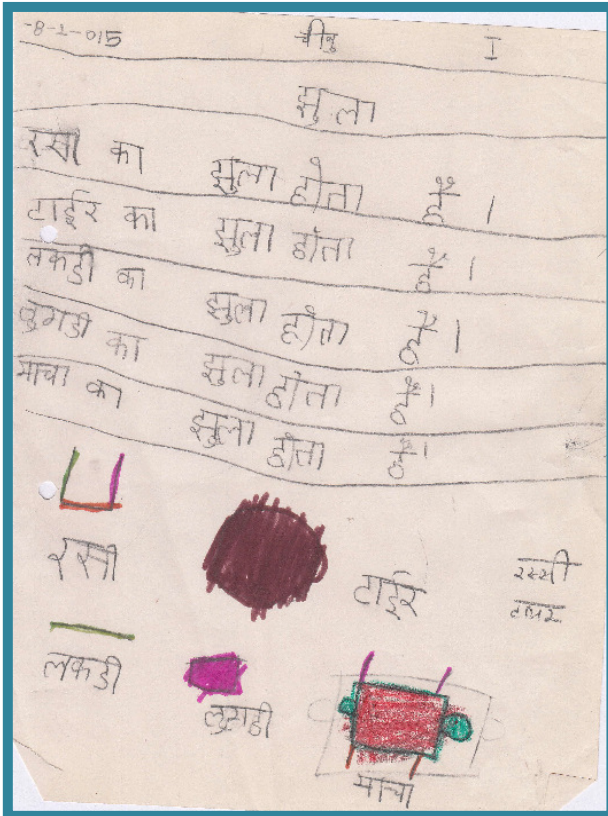 -8-2-015 चीनु I
झुला
रसी का झुला होता है।
टाईर का झुला होता है।
लकडी का झुला होता है।
लुगडी का झुला होता है।
माचा का झुला होता है।
रसी
टाईर
रस्सी
टायर
लकडी
लुगडी
माचा